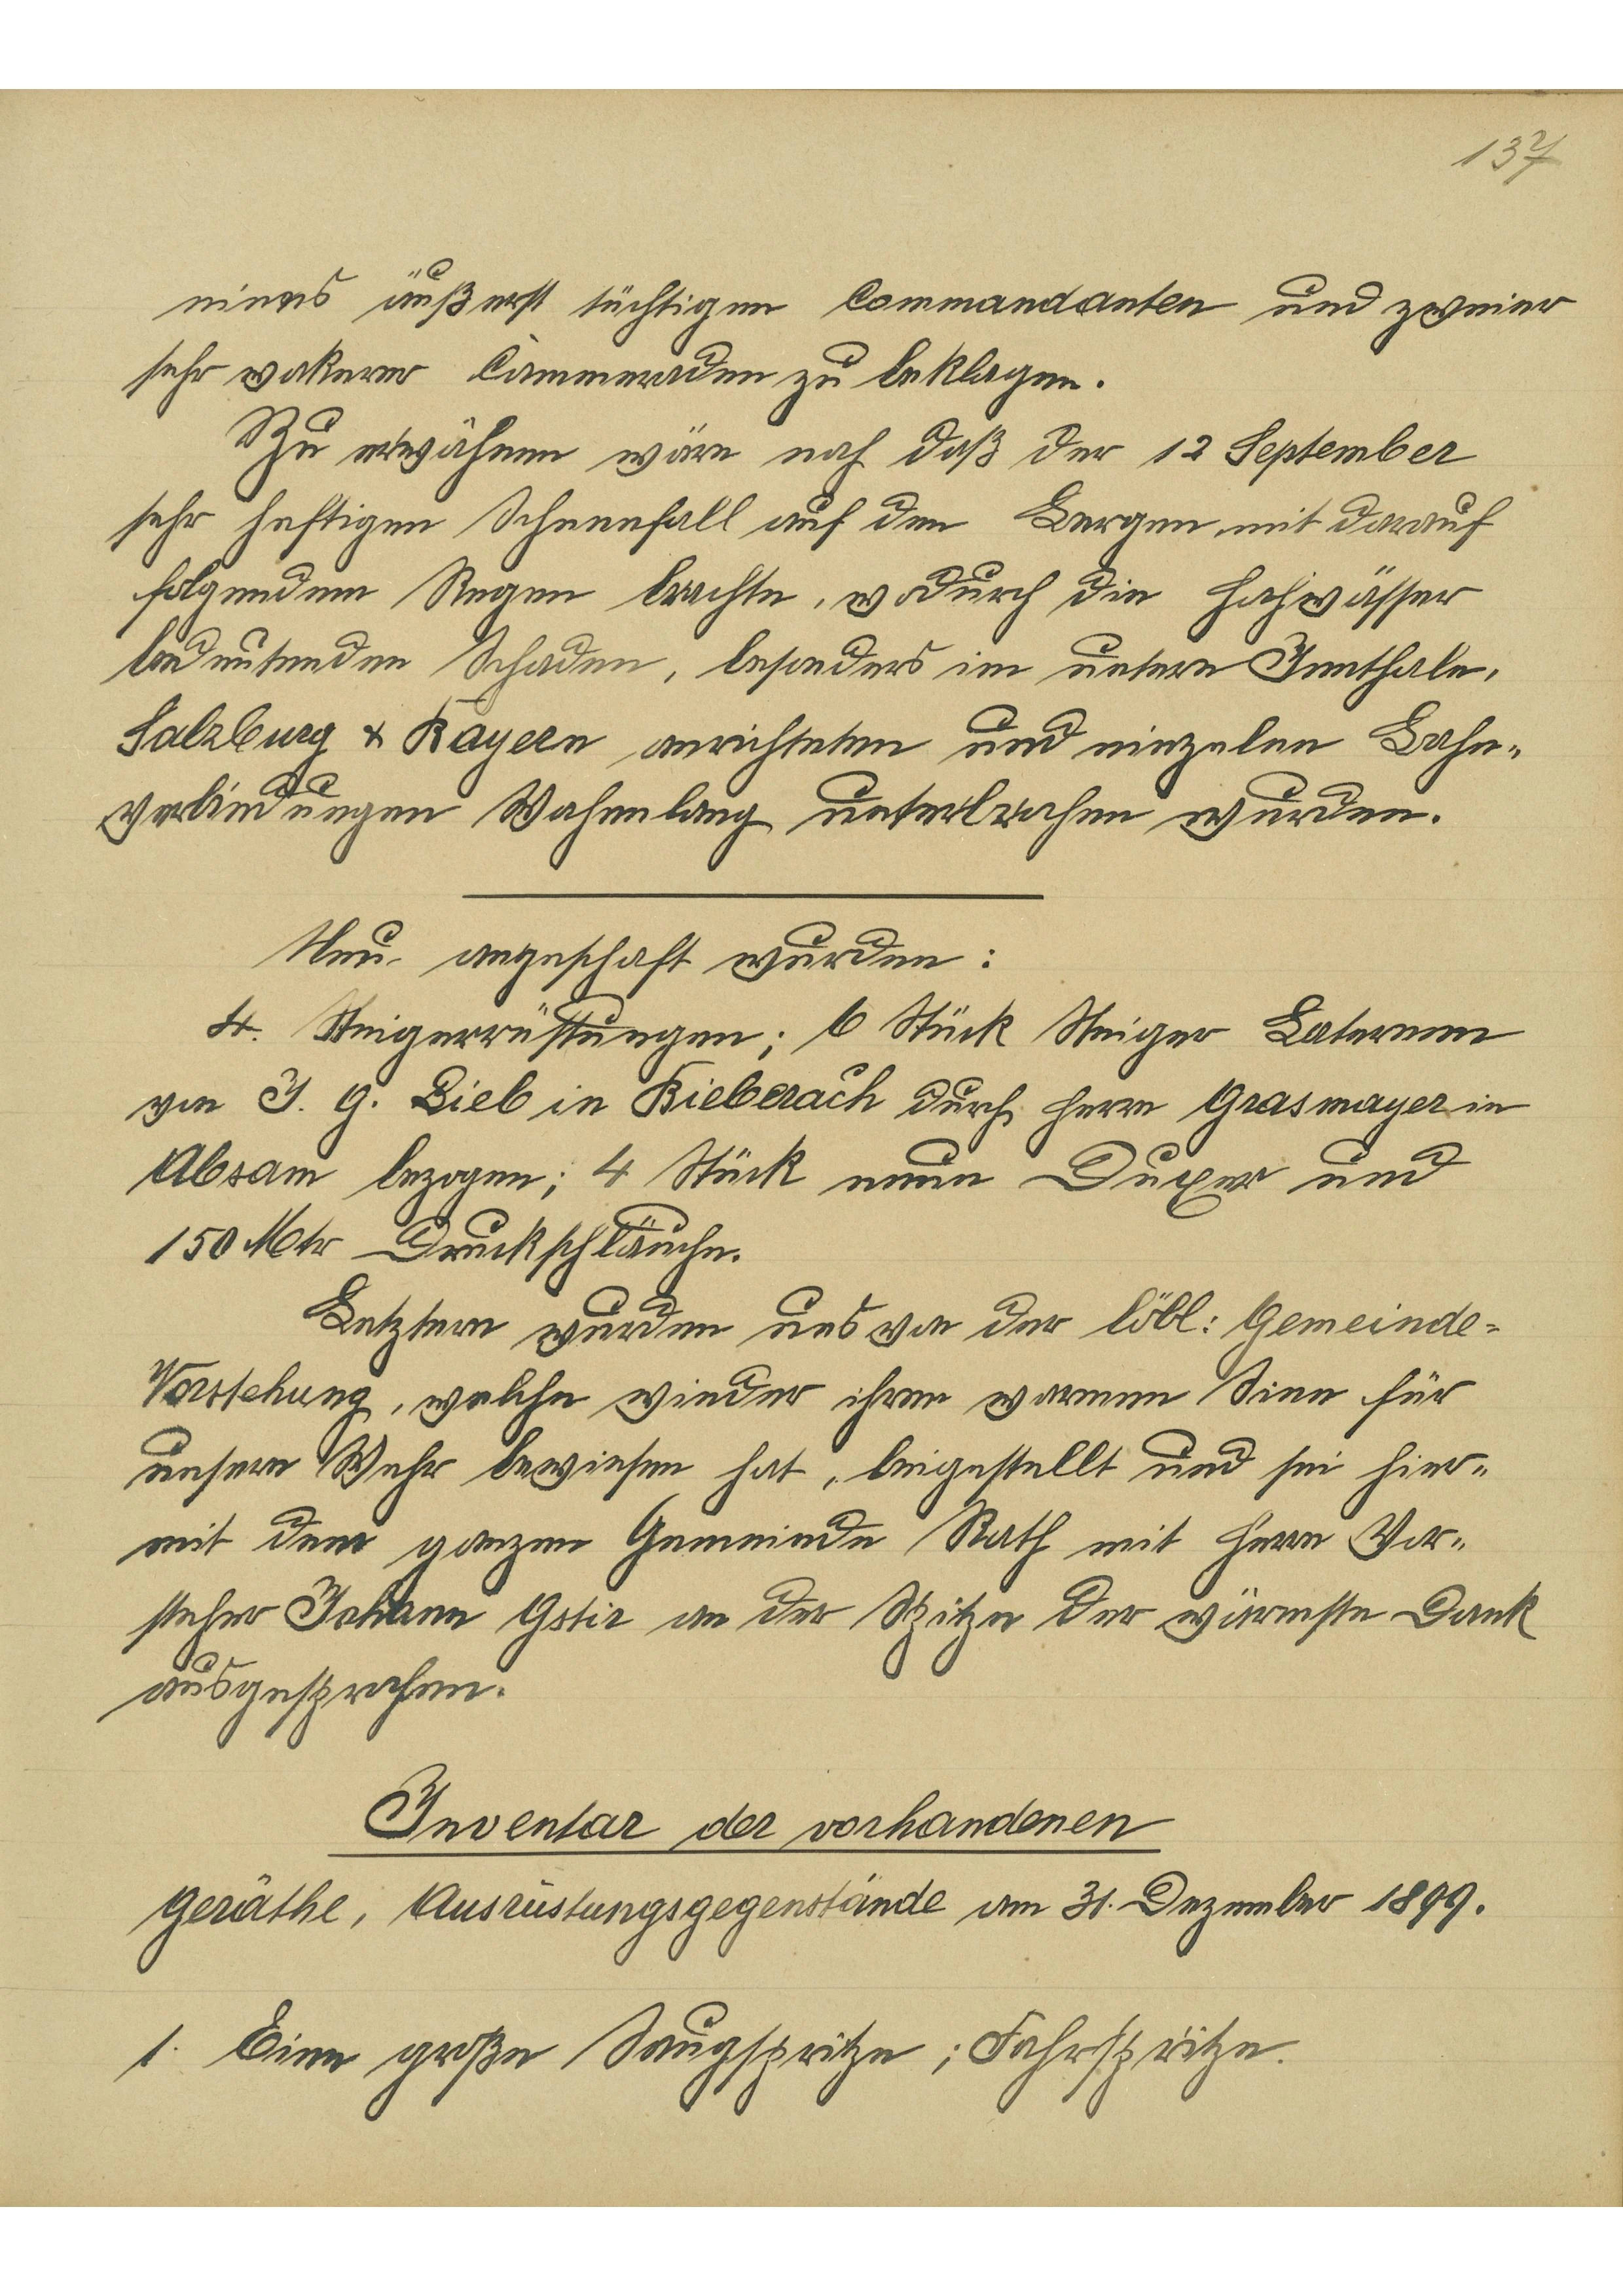 137
eines äußerst tüchtigen Commandanten und zweier
sehr wakerer Cammeraden zu beklagen.
Zu erwähnen wäre noch daß der 12 September
sehr heftigen Schneefall auf den Bergen mit darauf
folgendem Regen brachte, wodurch die Hochwässer
bedeutenden Schaden, besonders im untern Innthale,
Salzburg & Bayern anrichteten und einzelne Bahn-
verbindungen Wochenlang unterbrochen wurden.
Neu angeschaft wurden:
4. Steigerrüstungen; 6 Stück Steiger Laternen
von J. G. Lieb in Bieberach durch Herrn Grasmayer in
Absam bezogen; 4 Stück neue Duxer und
150 Mtr Druckschläuche.
Letztere wurden uns von der löbl: Gemeinde-
Vorstehung, welche wieder ihren warmen Sinn für
unsere Wehr bewiesen hat, beigestellt und sei hier-
mit dem ganzen Gemeinde Rath mit Herrn Vor-
steher Johann Gstir an der Spitze der wärmste Dank
ausgesprochen.
Inventar der vorhandenen
Geräthe, Ausrüstungsgegenstände am 31. Dezember 1899.
1. Eine große Saugspritze; Fahrspritze.